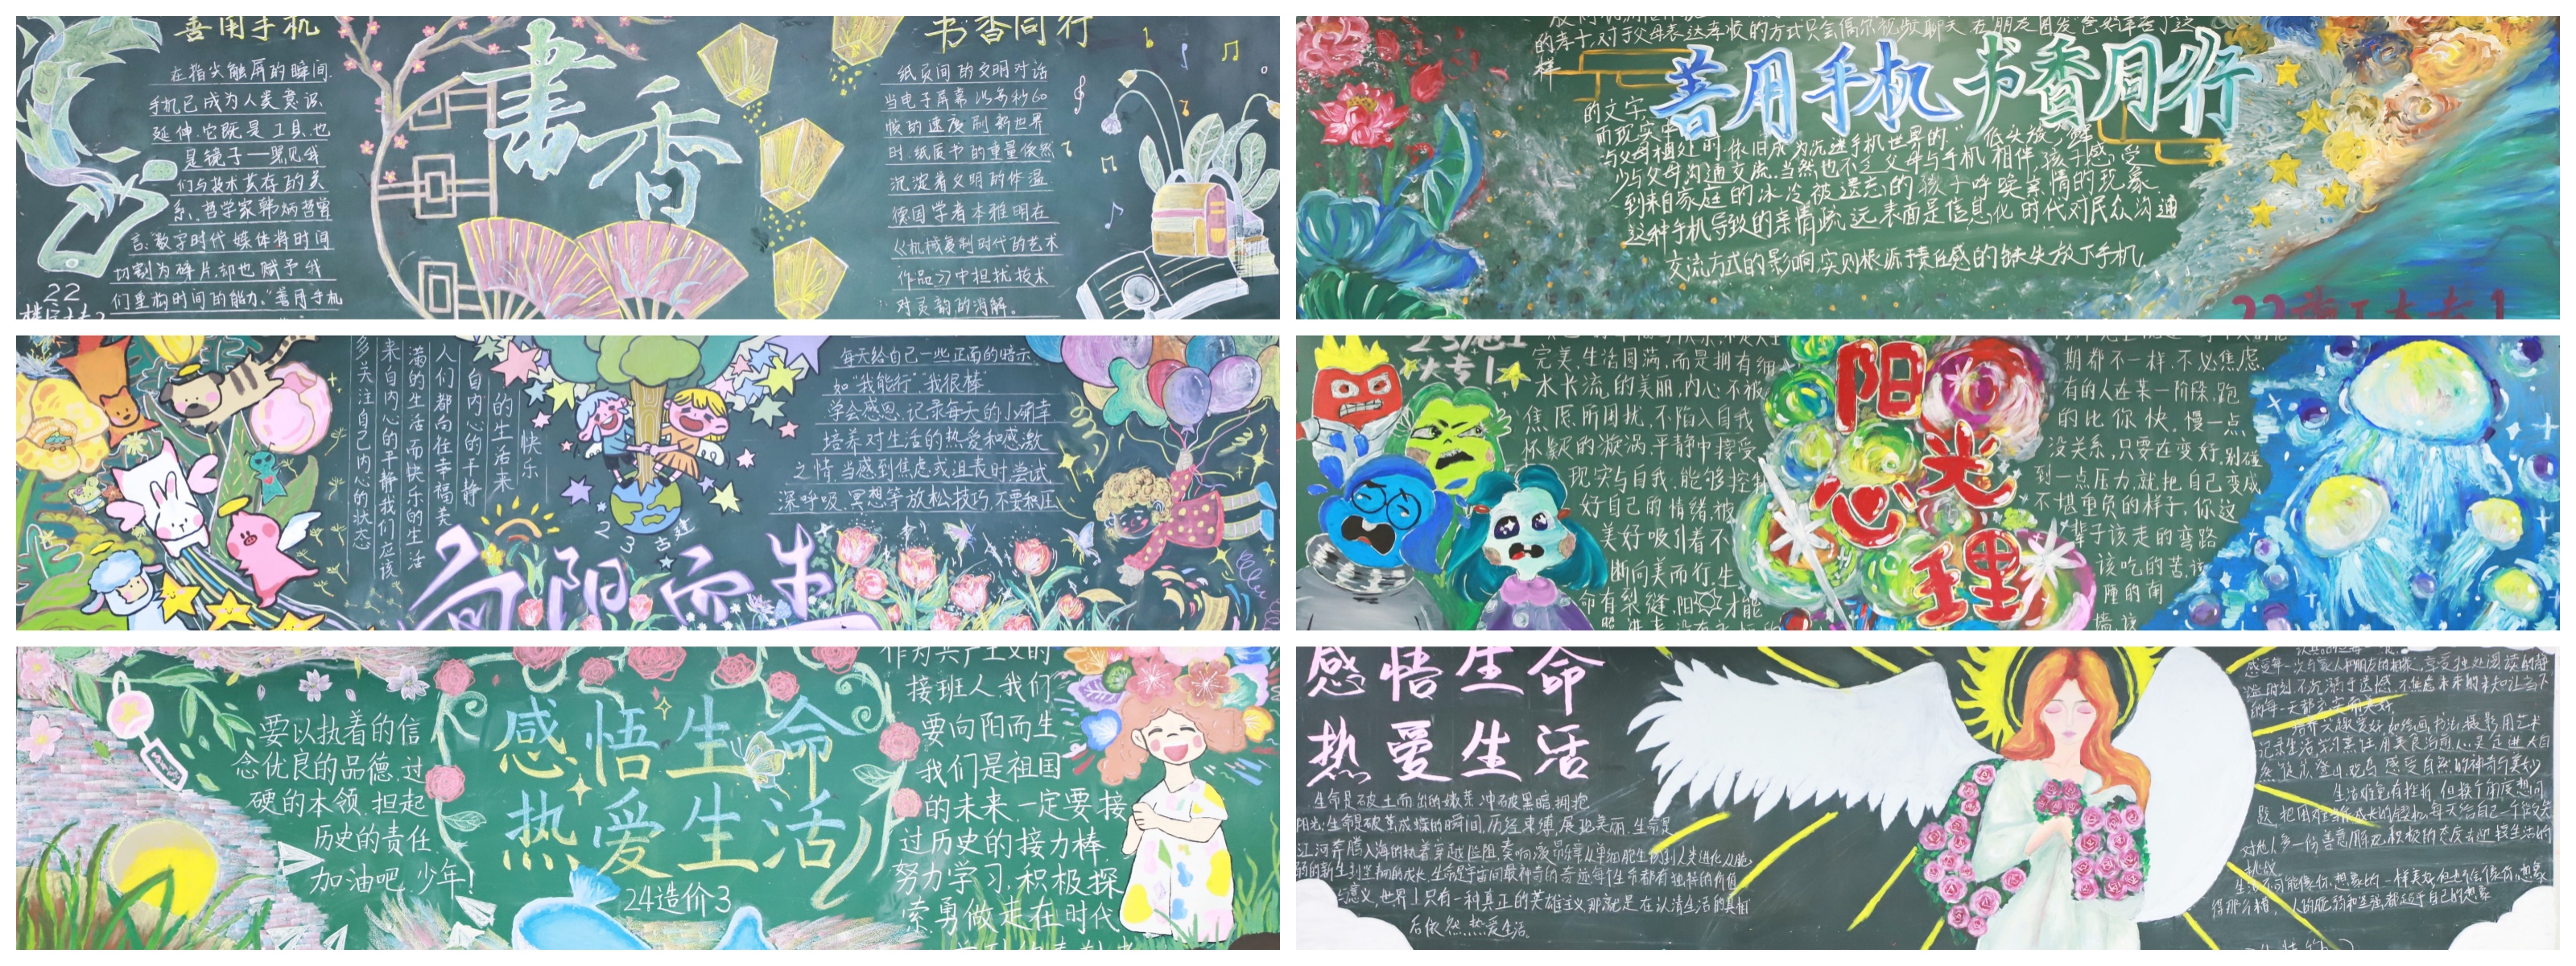 善用手机
在指尖触屏的瞬间,
手机已成为人类意识
延伸.它既是工具,也
是镜子——照见我
们与技术共存的关
系.哲学家韩炳哲曾
言:"数字时代媒体将时间
切割为碎片,却也赋予我
们重构时间的能力."善用手机
22
書香
书香同行
纸页间的文明对话
当电子屏幕以每秒60
帧的速度刷新世界
时,纸质书的重量依然
沉淀着文明的体温
德国学者本雅明在
《机械复制时代的艺术
作品》中担忧技术
对灵韵的消解。
的孝子,对于父母表达孝敬的方式只会偶尔视频聊天,在"朋友圈发
样
善用手机 书香同行
的文字,
而现实中
与父母相处时,依旧成为沉迷手机世界的"低头族",鲜
少与父母沟通交流.当然也不乏父母与手机相伴,孩子感受
到来自家庭的冰冷被遗忘的孩子呼唤亲情的现象.
这种手机导致的亲情疏远,表面是信息化时代对民众沟通
交流方式的影响,实则根源于责任感的缺失放下手机,
快乐
的生活来
自内心的平静
人们都向往幸福美
满的生活而快乐的生活
来自内心的平静我们应该
多关注自己内心的状态
23古建
向阳而生
每天给自己一些正面的暗示
如"我能行""我很棒"
学会感恩,记录每天的小确幸
培养对生活的热爱和感激
之情.当感到焦虑或沮丧时,尝试
深呼吸.冥想等放松技巧,不要积压
大专1
完美,生活圆满,而是拥有细
水长流的美丽,内心不被
焦虑所困扰,不陷入自我
怀疑的漩涡,平静中接受
现实与自我,能够控制
好自己的情绪,被
美好吸引着不
断向美而行,生
命有裂缝,阳 才能
阳光心理
期都不一样,不必焦虑,
有的人在某一阶段,跑
的比你快,慢一点
没关系,只要在变好,别碰
到一点压力,就把自己变成
不堪重负的样子,你这
辈子该走的弯路
该吃的苦,该
撞的南
墙,该
要以执着的信
念优良的品德,过
硬的本领,担起
历史的责任,
加油吧,少年!
感悟生命
热爱生活
24造价3
作为共产主义的
接班人,我们
要向阳而生,
我们是祖国
的未来,一定要接
过历史的接力棒,
努力学习,积极探
索,勇做走在时代
感悟生命
热爱生活
生命是破土而出的嫩芽,冲破黑暗,拥抱
阳光;生命是破茧成蝶的瞬间,历经束缚,展现美丽,生命是
江河奔腾入海的执着,穿越险阻,奏响凌
生命是宇宙间最神奇的奇迹每个生命都有独特的价值
意义,世界上只有一种真正的英雄主义,那就是在认清生活的真相
后依然热爱生活。
感受每一次与家人和朋友的相聚,享受独处阅读的静
的每一天都充实而美好
培养兴趣爱好,如绘画,书法,摄影,用艺术
生活难免有挫折,但换个角度想问
题,把困难当作成长的契机,每天给自己一个微笑
对他人多一份善意用乐观积极的态度去迎接生活的
挑战
生活不可能像你想象的一样美好但也不会像你想象
得那么糟,人的脆弱和坚强都超乎自己的想象